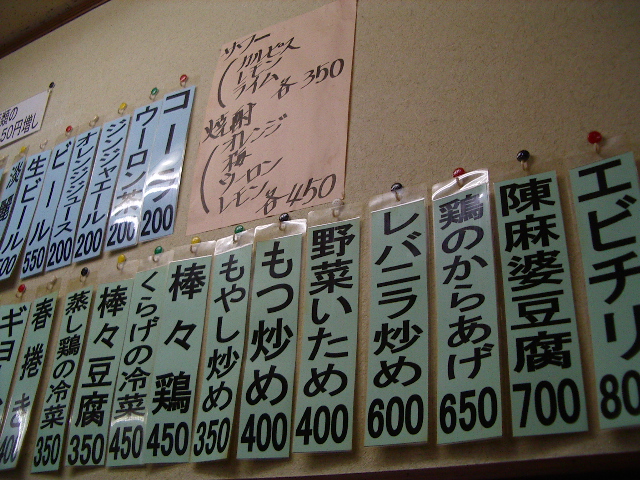 サワー
カルピス
レモン
ライム
各350
焼酎
オレンジ
梅
ウーロン
レモン
各450
コーラ
200
ウーロン茶
200
ジンジャエール
200
オレンジジュース
200
ビール
生ビール
550
淡麗
類の
50円増し
エビチリ
80
陳麻婆豆腐
700
鶏のからあげ
650
レバニラ炒め
600
野菜いため
400
もつ炒め
400
もやし炒め
350
棒々鶏
450
くらげの冷菜
450
棒々豆腐
350
蒸し鶏の冷菜
350
春捲き
350
ギョ
400